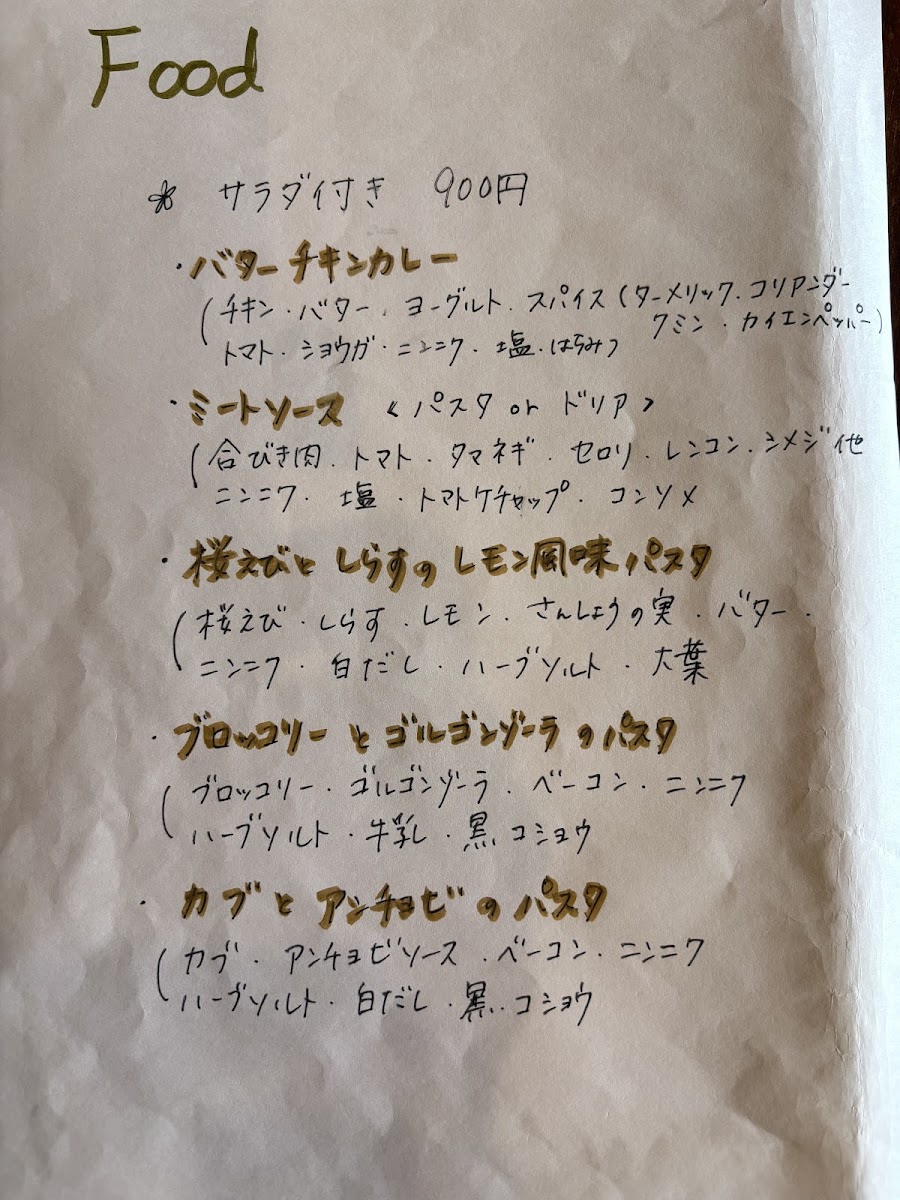 Food
* サラダ付き 900円
・バターチキンカレー
(チキン・バター・ヨーグルト・スパイス(ターメリック・コリアンダー
クミン・カイエンペッパー)
トマト・ショウガ・ニンニク・塩・はちみつ
・ミートソース <パスタ or ドリア>
(合びき肉・トマト・タマネギ・セロリ・レンコン・シメジ他
ニンニク・塩・トマトケチャップ・コンソメ
・桜えびとしらすのレモン風味パスタ
(桜えび・しらす・レモン・さんしょうの実・バター・
ニンニク・白だし・ハーブソルト・大葉
・ブロッコリーとゴルゴンゾーラのパスタ
(ブロッコリー・ゴルゴンゾーラ・ベーコン・ニンニク
ハーブソルト・牛乳・黒コショウ
・カブとアンチョビのパスタ
(カブ・アンチョビソース・ベーコン・ニンニク
ハーブソルト・白だし・黒コショウ